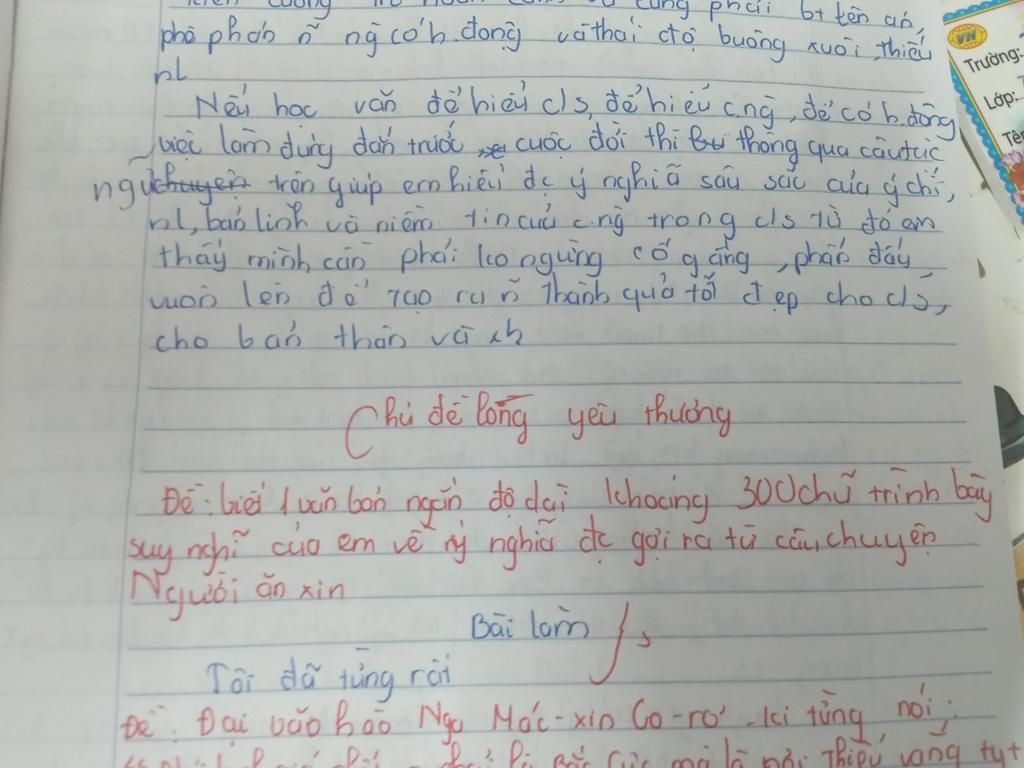 phê phán ñ ng có h.động và thái độ buông xuôi, thiếu
nl
Nếu học văn để hiểu c/s, để hiểu c.ng, để có h.động
việc làm đúng đắn trước cuộc đời thì thông qua câu tục
ngữ trên giúp em hiểu đc ý nghĩa sâu sắc của ý chí,
nl, bản lĩnh và niềm tin của c.ng trong c/s từ đó em
thấy mình cần phải ko ngừng cố gắng, phấn đấu
vươn lên để tạo ra ñ thành quả tốt đẹp cho c/s,
cho bản thân và xh
Chủ đề lòng yêu thương
Đề: Viết 1 văn bản ngắn độ dài khoảng 300 chữ trình bày
suy nghĩ của em về ý nghĩa đc gợi ra từ câu chuyện
Người ăn xin
Bài làm
Tôi đã từng rất
Đề: Đại văn hào Nga Mác-xin Go-rơ-ki từng nói:
Bắc Cực mà là nơi thiếu vắng ty+
VN
Trường:
Lớp:
Tê